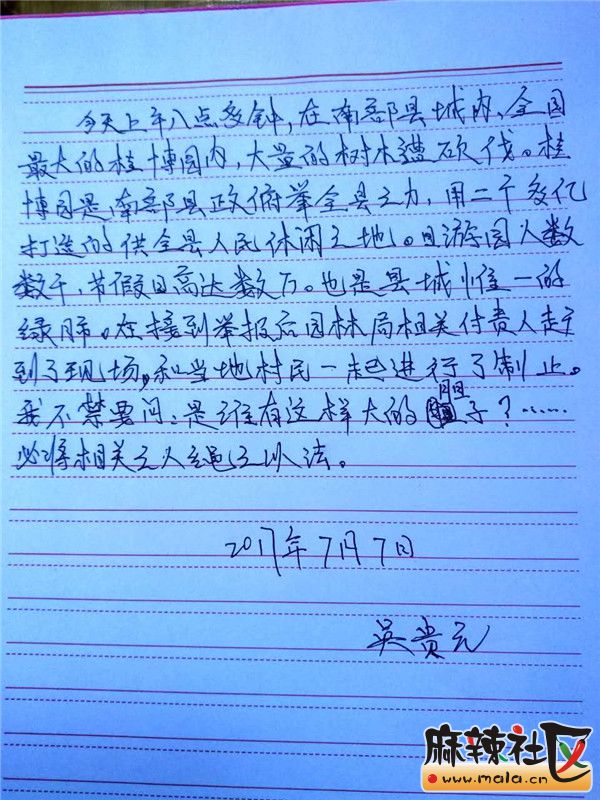 今天上午八点多钟，在南部县城内，全国
最大的桂博园内，大量的树木遭砍伐。桂
博园是南部县政府举全县之力，用二个多亿
打造的供全县人民休闲之地。日游园人数
数千，节假日高达数万。也是县城惟一的
绿肺。在接到举报后园林局相关付责人赶
到了现场，和当地村民一起进行了制止。
我不禁要问：是谁有这样大的胆子？……
必将相关之人绳之以法。
2017年7月7日
吴贵元
麻辣社区
www.mala.cn